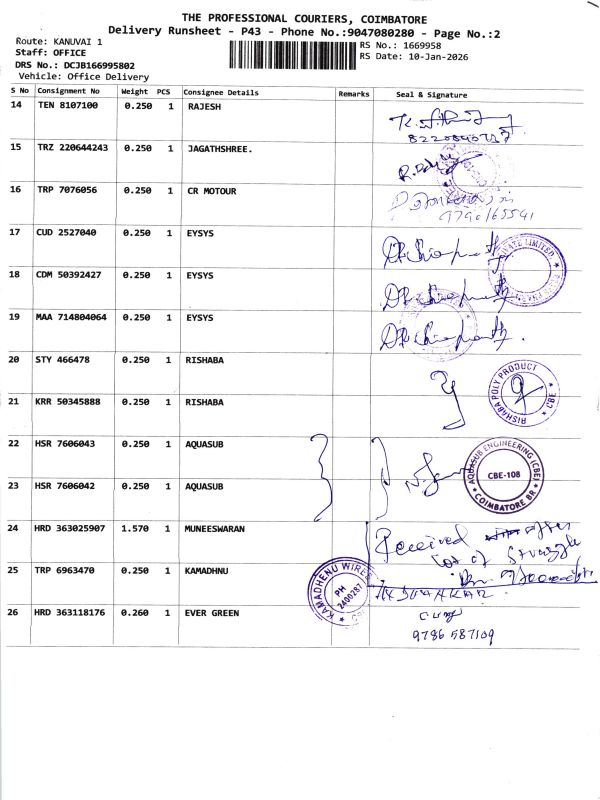 THE PROFESSIONAL COURIERS, COIMBATORE
Delivery Runsheet - P43 - Phone No.:9047080280 - Page No.:2
Route: KANUVAI 1
Staff: OFFICE
DRS No.: DCJB166995802
Vehicle: Office Delivery
RS No.: 1669958
RS Date: 10-Jan-2026
S No Consignment No Weight PCS Consignee Details Remarks Seal & Signature
14 TEN 8107100 0.250 1 RAJESH
15 TRZ 220644243 0.250 1 JAGATHSHREE.
16 TRP 7076056 0.250 1 CR MOTOUR
9790165541
17 CUD 2527040 0.250 1 EYSYS
18 CDM 50392427 0.250 1 EYSYS
19 MAA 714804064 0.250 1 EYSYS
20 STY 466478 0.250 1 RISHABA
RISHABA POLY PRODUCT
CBE
21 KRR 50345888 0.250 1 RISHABA
22 HSR 7606043 0.250 1 AQUASUB
AQUASUB ENGINEERING (CBE)
CBE-108
COIMBATORE BR
23 HSR 7606042 0.250 1 AQUASUB
24 HRD 363025907 1.570 1 MUNEESWARAN
Received after
lot of struggle
25 TRP 6963470 0.250 1 KAMADHNU
KAMADHENU WIRES
PH
2400287
26 HRD 363118176 0.260 1 EVER GREEN
9786587109